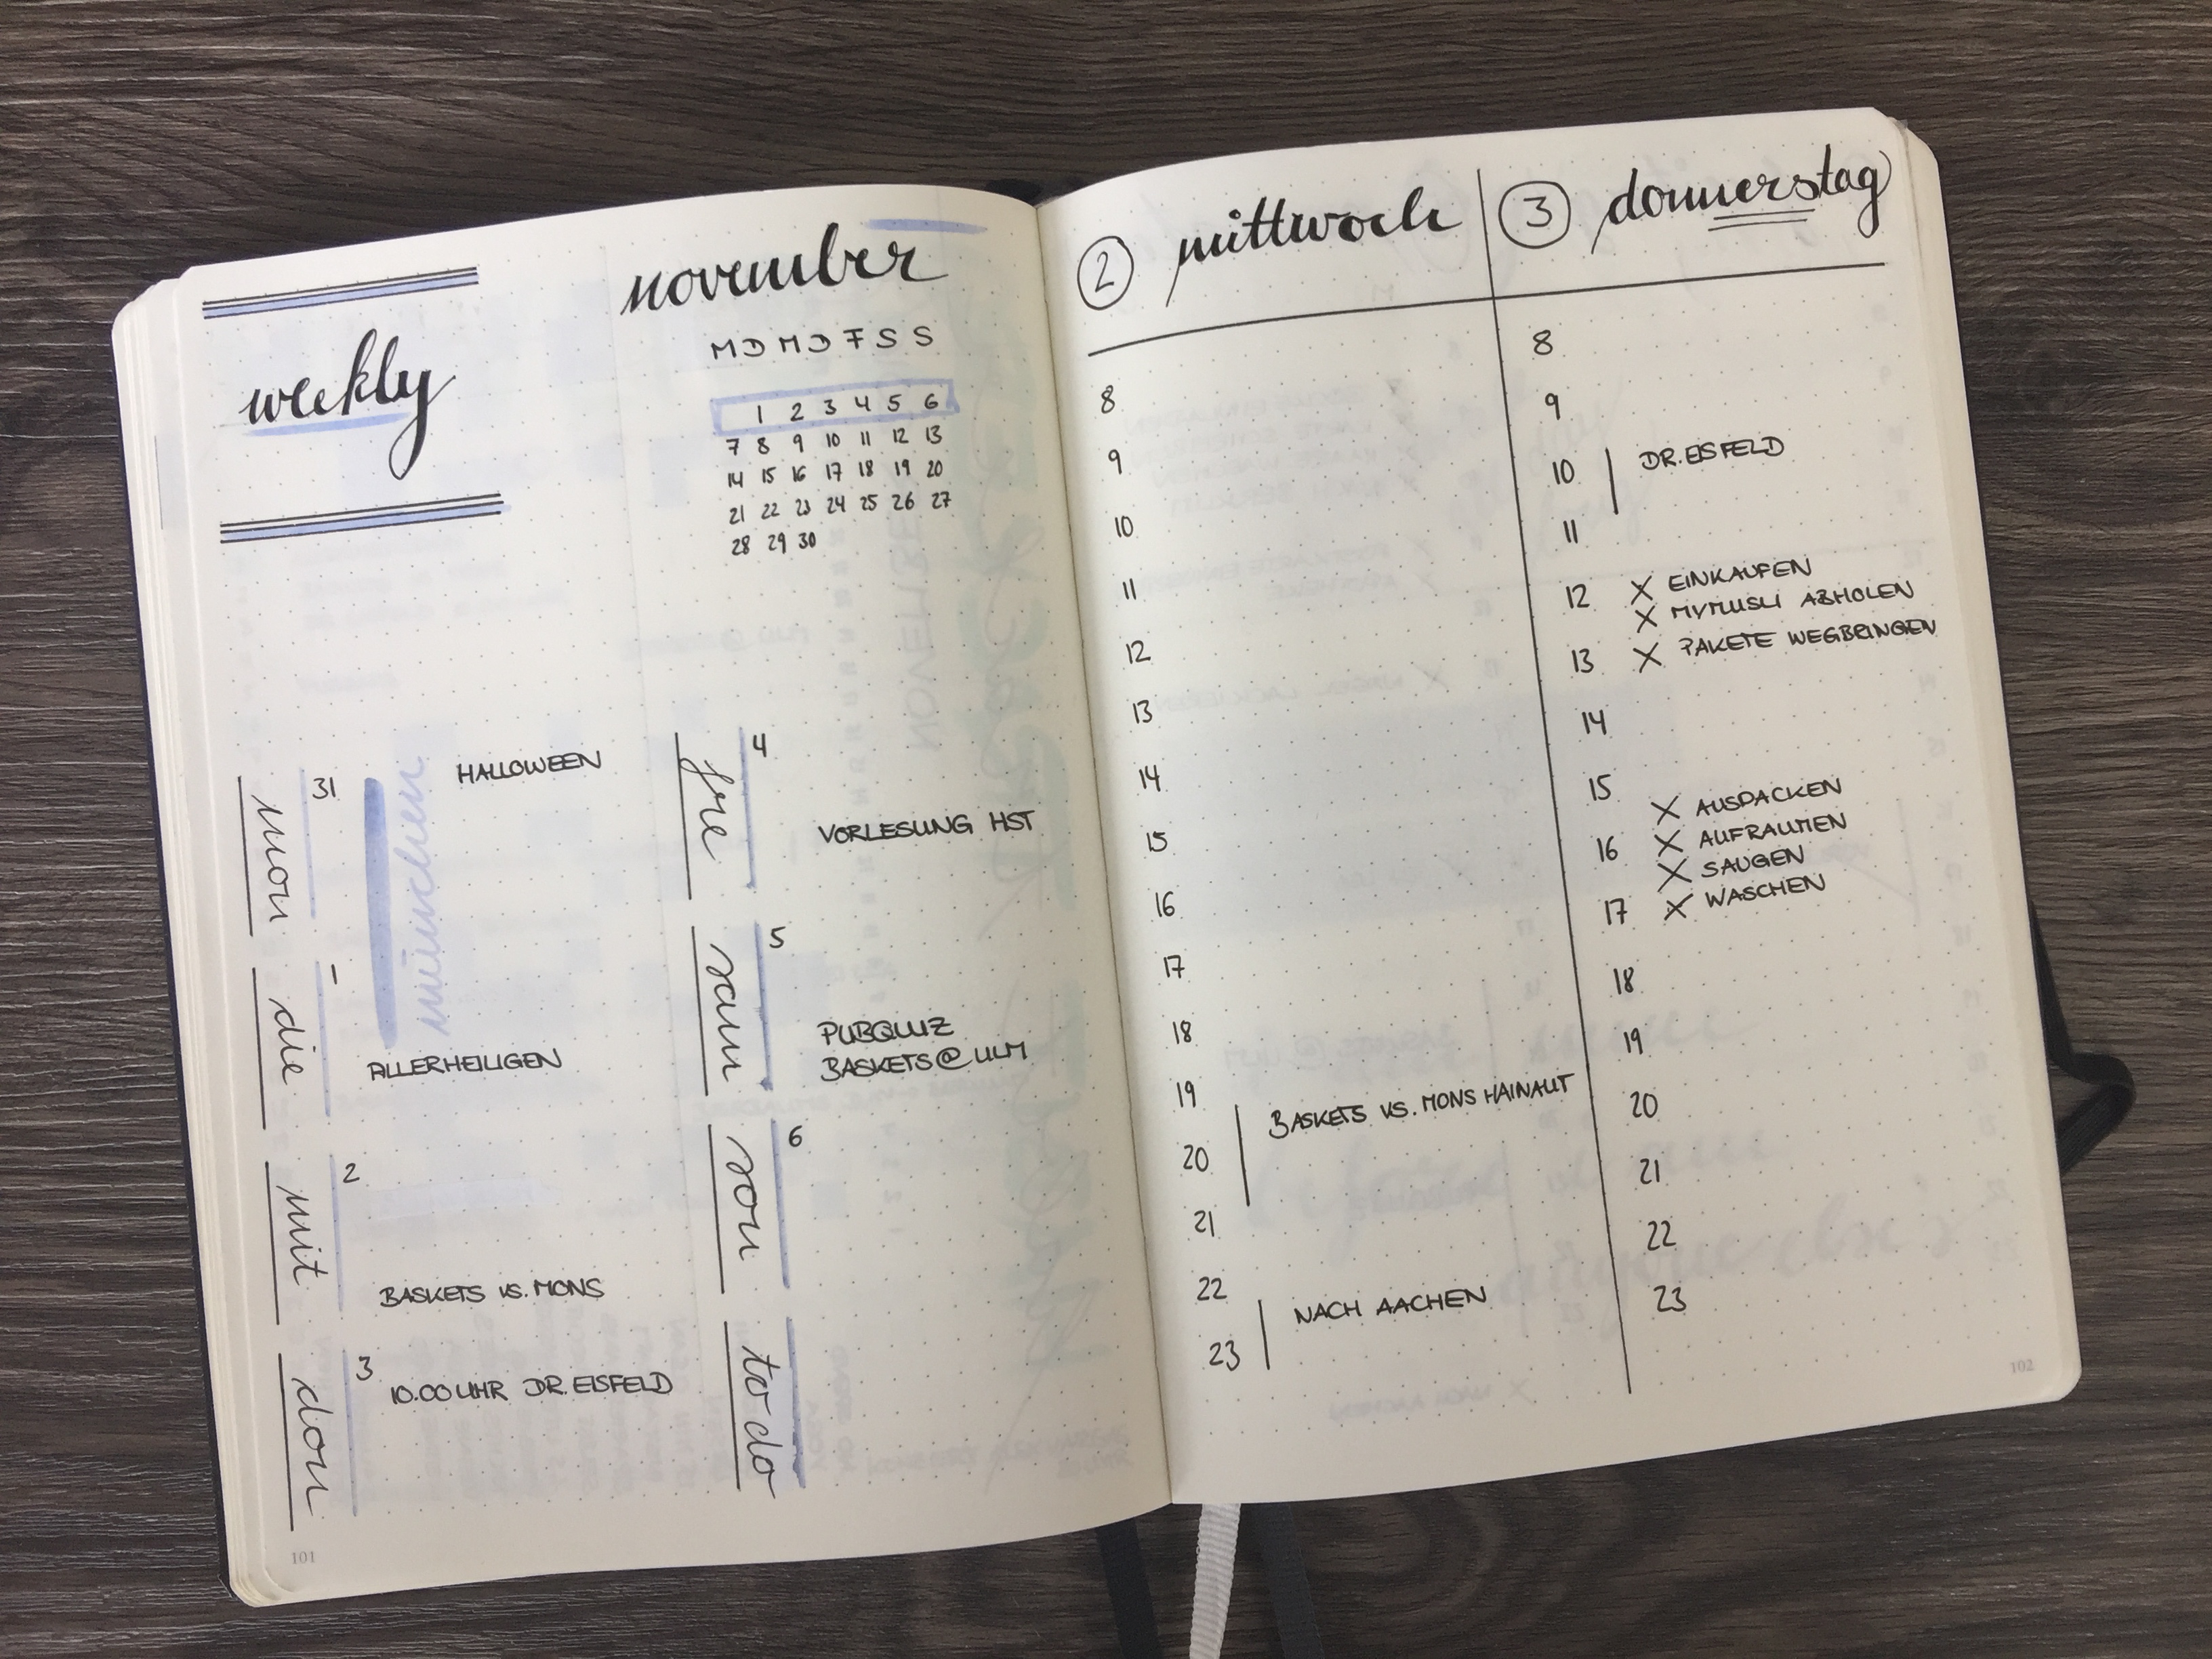 weekly
november
M D M D F S S
1 2 3 4 5 6
7 8 9 10 11 12 13
14 15 16 17 18 19 20
21 22 23 24 25 26 27
28 29 30
mon
31
münchen
HALLOWEEN
die
1
ALLERHEILIGEN
mit
2
BASKETS VS. MONS
don
3
10.00 UHR DR. EISFELD
fre
4
VORLESUNG HST
sam
5
PUBQUIZ
BASKETS@ULM
son
6
to do
101
2 mittwoch
8
9
10
11
12
13
14
15
16
17
18
19
BASKETS VS. MONS HAINAUT
20
21
22
NACH AACHEN
23
3 donnerstag
8
9
10 DR. EISFELD
11
12 X EINKAUFEN
X MYMUSLI ABHOLEN
13 X PAKETE WEGBRINGEN
14
15
X AUSPACKEN
16 X AUFRÄUMEN
X SAUGEN
17 X WASCHEN
18
19
20
21
22
23
102